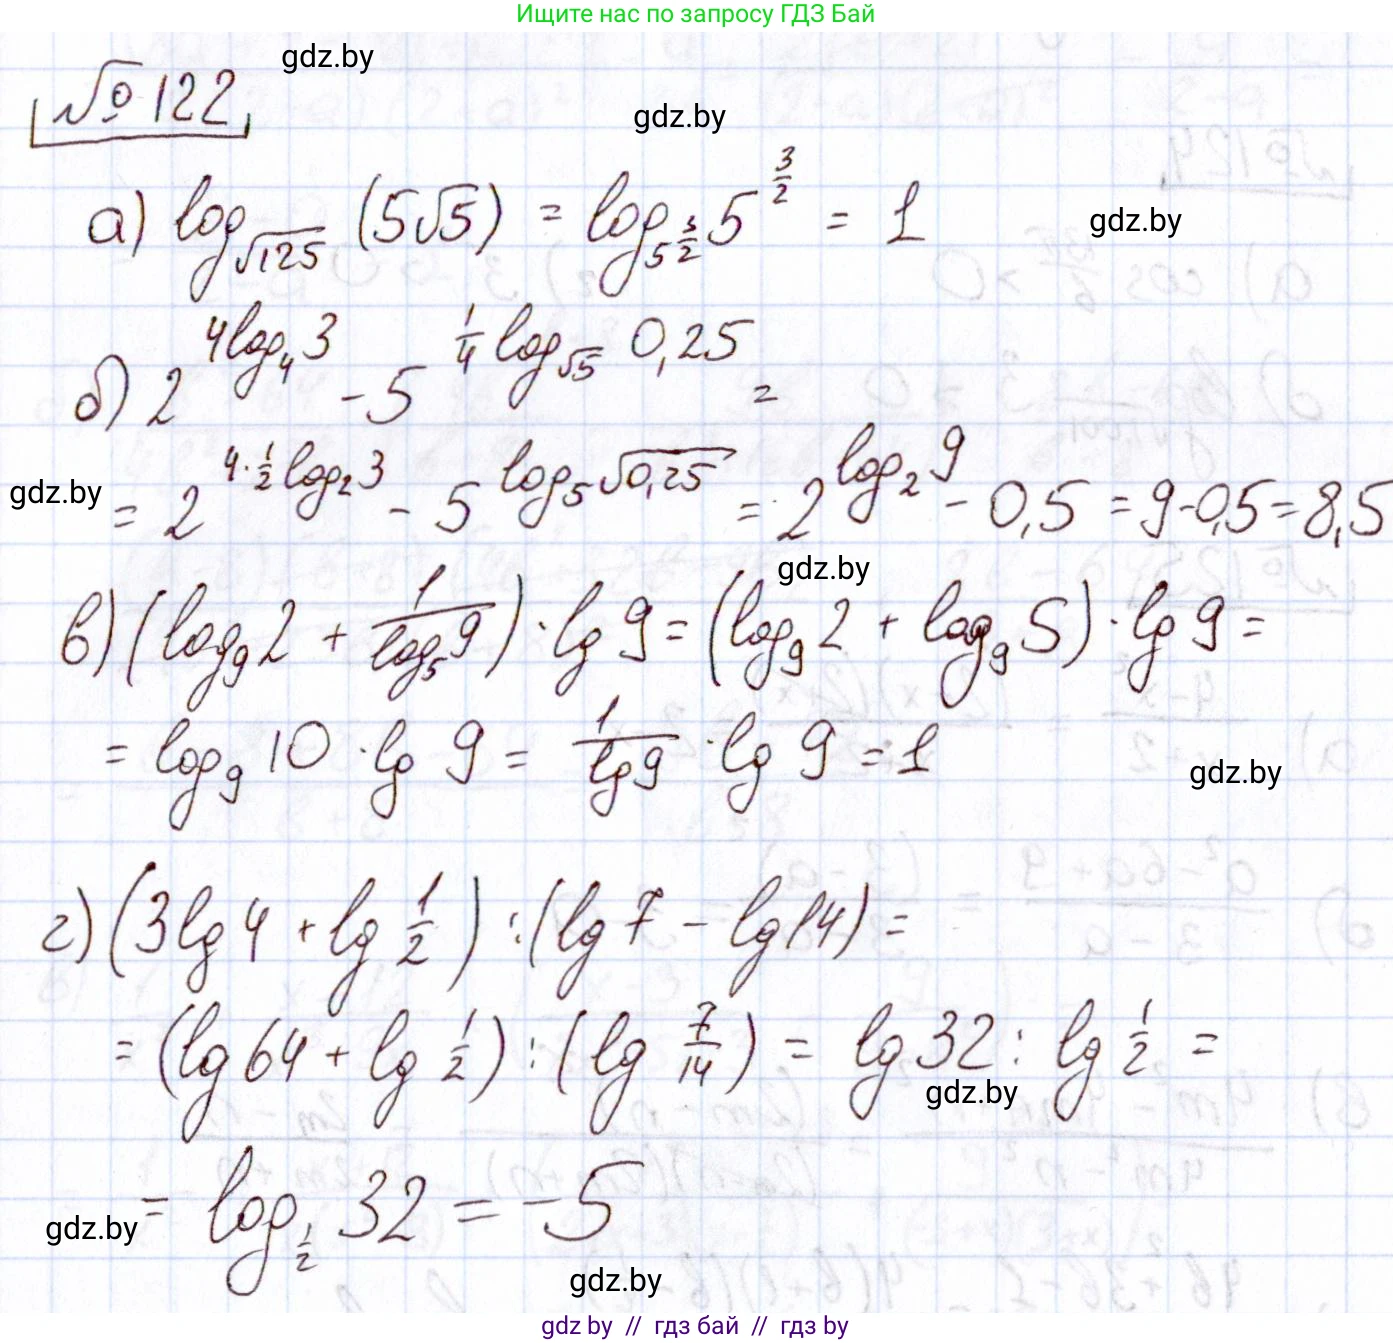 Ищите нас по запросу ГДЗ Бай
gdz.by
№122
gdz.by
а) log_{√125} (5√5) = log_{5^{3/2}} 5^{3/2} = 1
gdz.by
б) 2^{4log_4 3} - 5^{1/4 log_{√5} 0,25} =
gdz.by
= 2^{4·1/2 log_2 3} - 5^{log_5 √0,25} = 2^{log_2 9} - 0,5 = 9-0,5 = 8,5
gdz.by
в) (log_9 2 + 1/log_5 9) · lg 9 = (log_9 2 + log_9 5) · lg 9 =
= log_9 10 · lg 9 = 1/lg 9 · lg 9 = 1
gdz.by
г) (3lg4 + lg 1/2) : (lg7 - lg14) =
= (lg64 + lg 1/2) : (lg 7/14) = lg32 : lg 1/2 =
gdz.by
= log_{1/2} 32 = -5
gdz.by
gdz.by
gdz by // гдз бай // gdz by